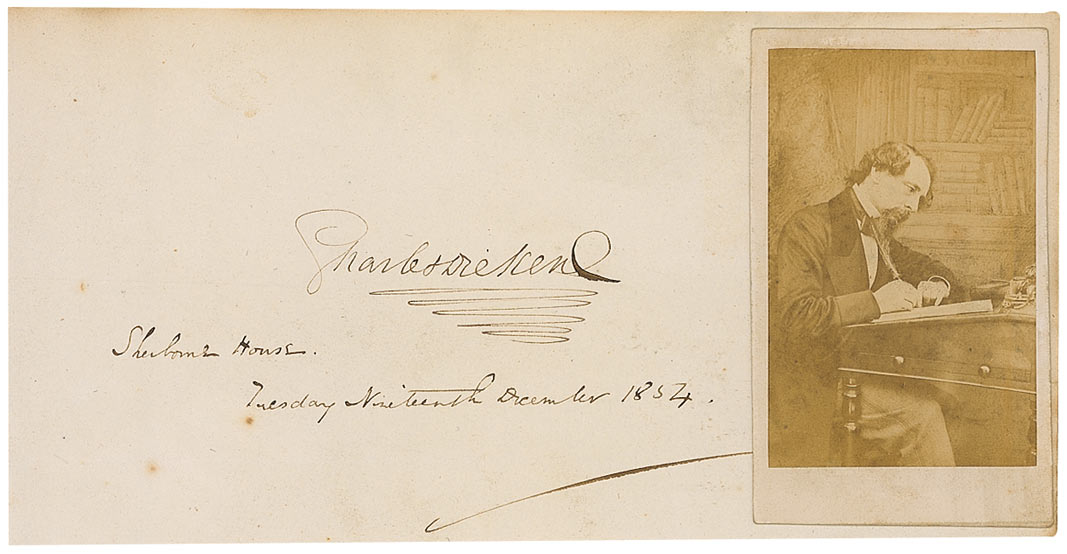 Charles Dickens
Sherborne House.
Tuesday Nineteenth December 1854.